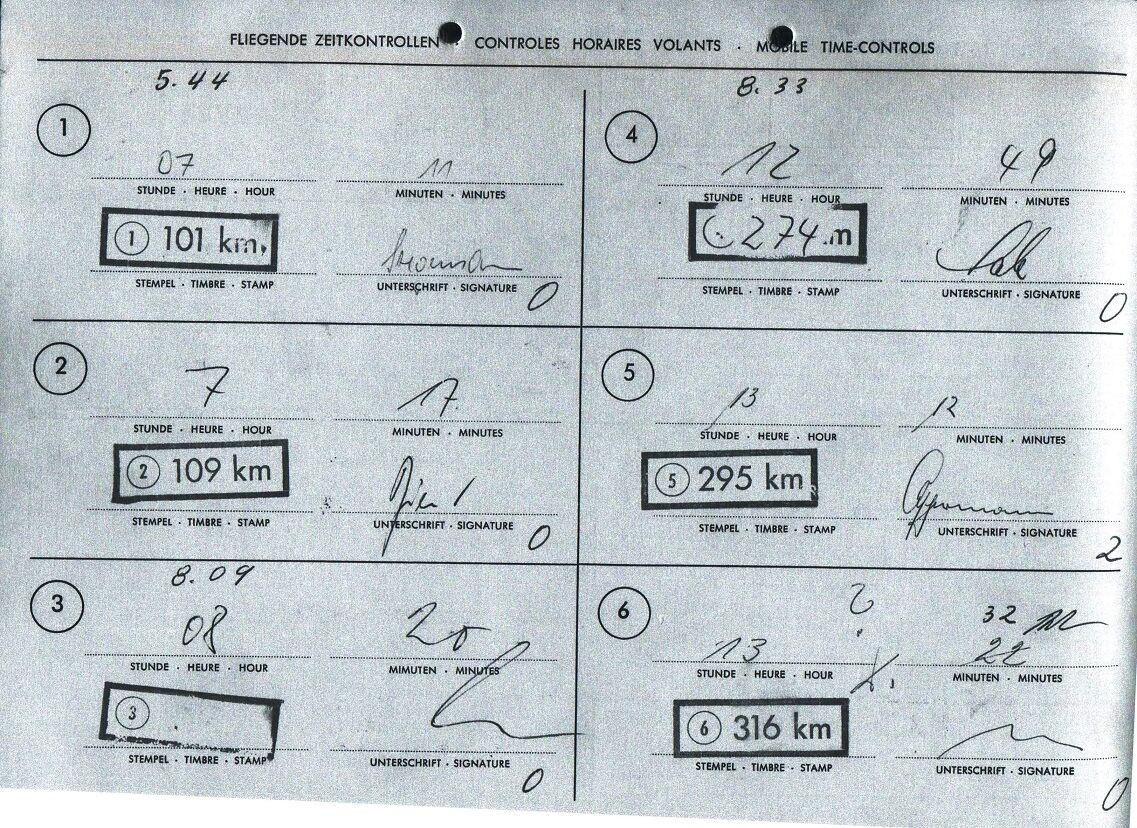 FLIEGENDE ZEITKONTROLLEN · CONTROLES HORAIRES VOLANTS · MOBILE TIME-CONTROLS
5.44
1
07 11
STUNDE · HEURE · HOUR MINUTEN · MINUTES
1 101 km.
STEMPEL · TIMBRE · STAMP UNTERSCHRIFT · SIGNATURE
0
2
7 17
STUNDE · HEURE · HOUR MINUTEN · MINUTES
2 109 km
STEMPEL · TIMBRE · STAMP UNTERSCHRIFT · SIGNATURE
0
8.09
3
08 20
STUNDE · HEURE · HOUR MIMUTEN · MINUTES
3
STEMPEL · TIMBRE · STAMP UNTERSCHRIFT · SIGNATURE
0
8.33
4
12 49
STUNDE · HEURE · HOUR MINUTEN · MINUTES
274 m
STEMPEL · TIMBRE · STAMP UNTERSCHRIFT · SIGNATURE
0
5
13 12
STUNDE · HEURE · HOUR MINUTEN · MINUTES
5 295 km
STEMPEL · TIMBRE · STAMP UNTERSCHRIFT · SIGNATURE
2
6
32
13 22
STUNDE · HEURE · HOUR MINUTEN · MINUTES
6 316 km
STEMPEL · TIMBRE · STAMP UNTERSCHRIFT · SIGNATURE
0